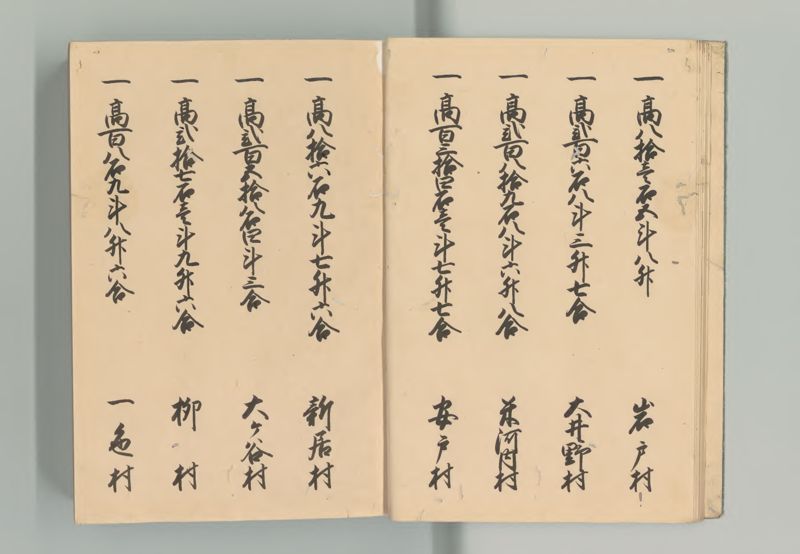 一高八拾壱石五斗八升 岩戸村
一高弐百六石八斗三升七合 大井野村
一高弐百八拾九石八斗六升八合 河内村
一高百三拾四石壱斗七升七合 安戸村
一高八拾六石九斗七升六合 新居村
一高弐百五拾八石四斗三合 大ケ谷村
一高弐拾七石壱斗九升六合 柳村
一高百八石九斗八升六合 一色村